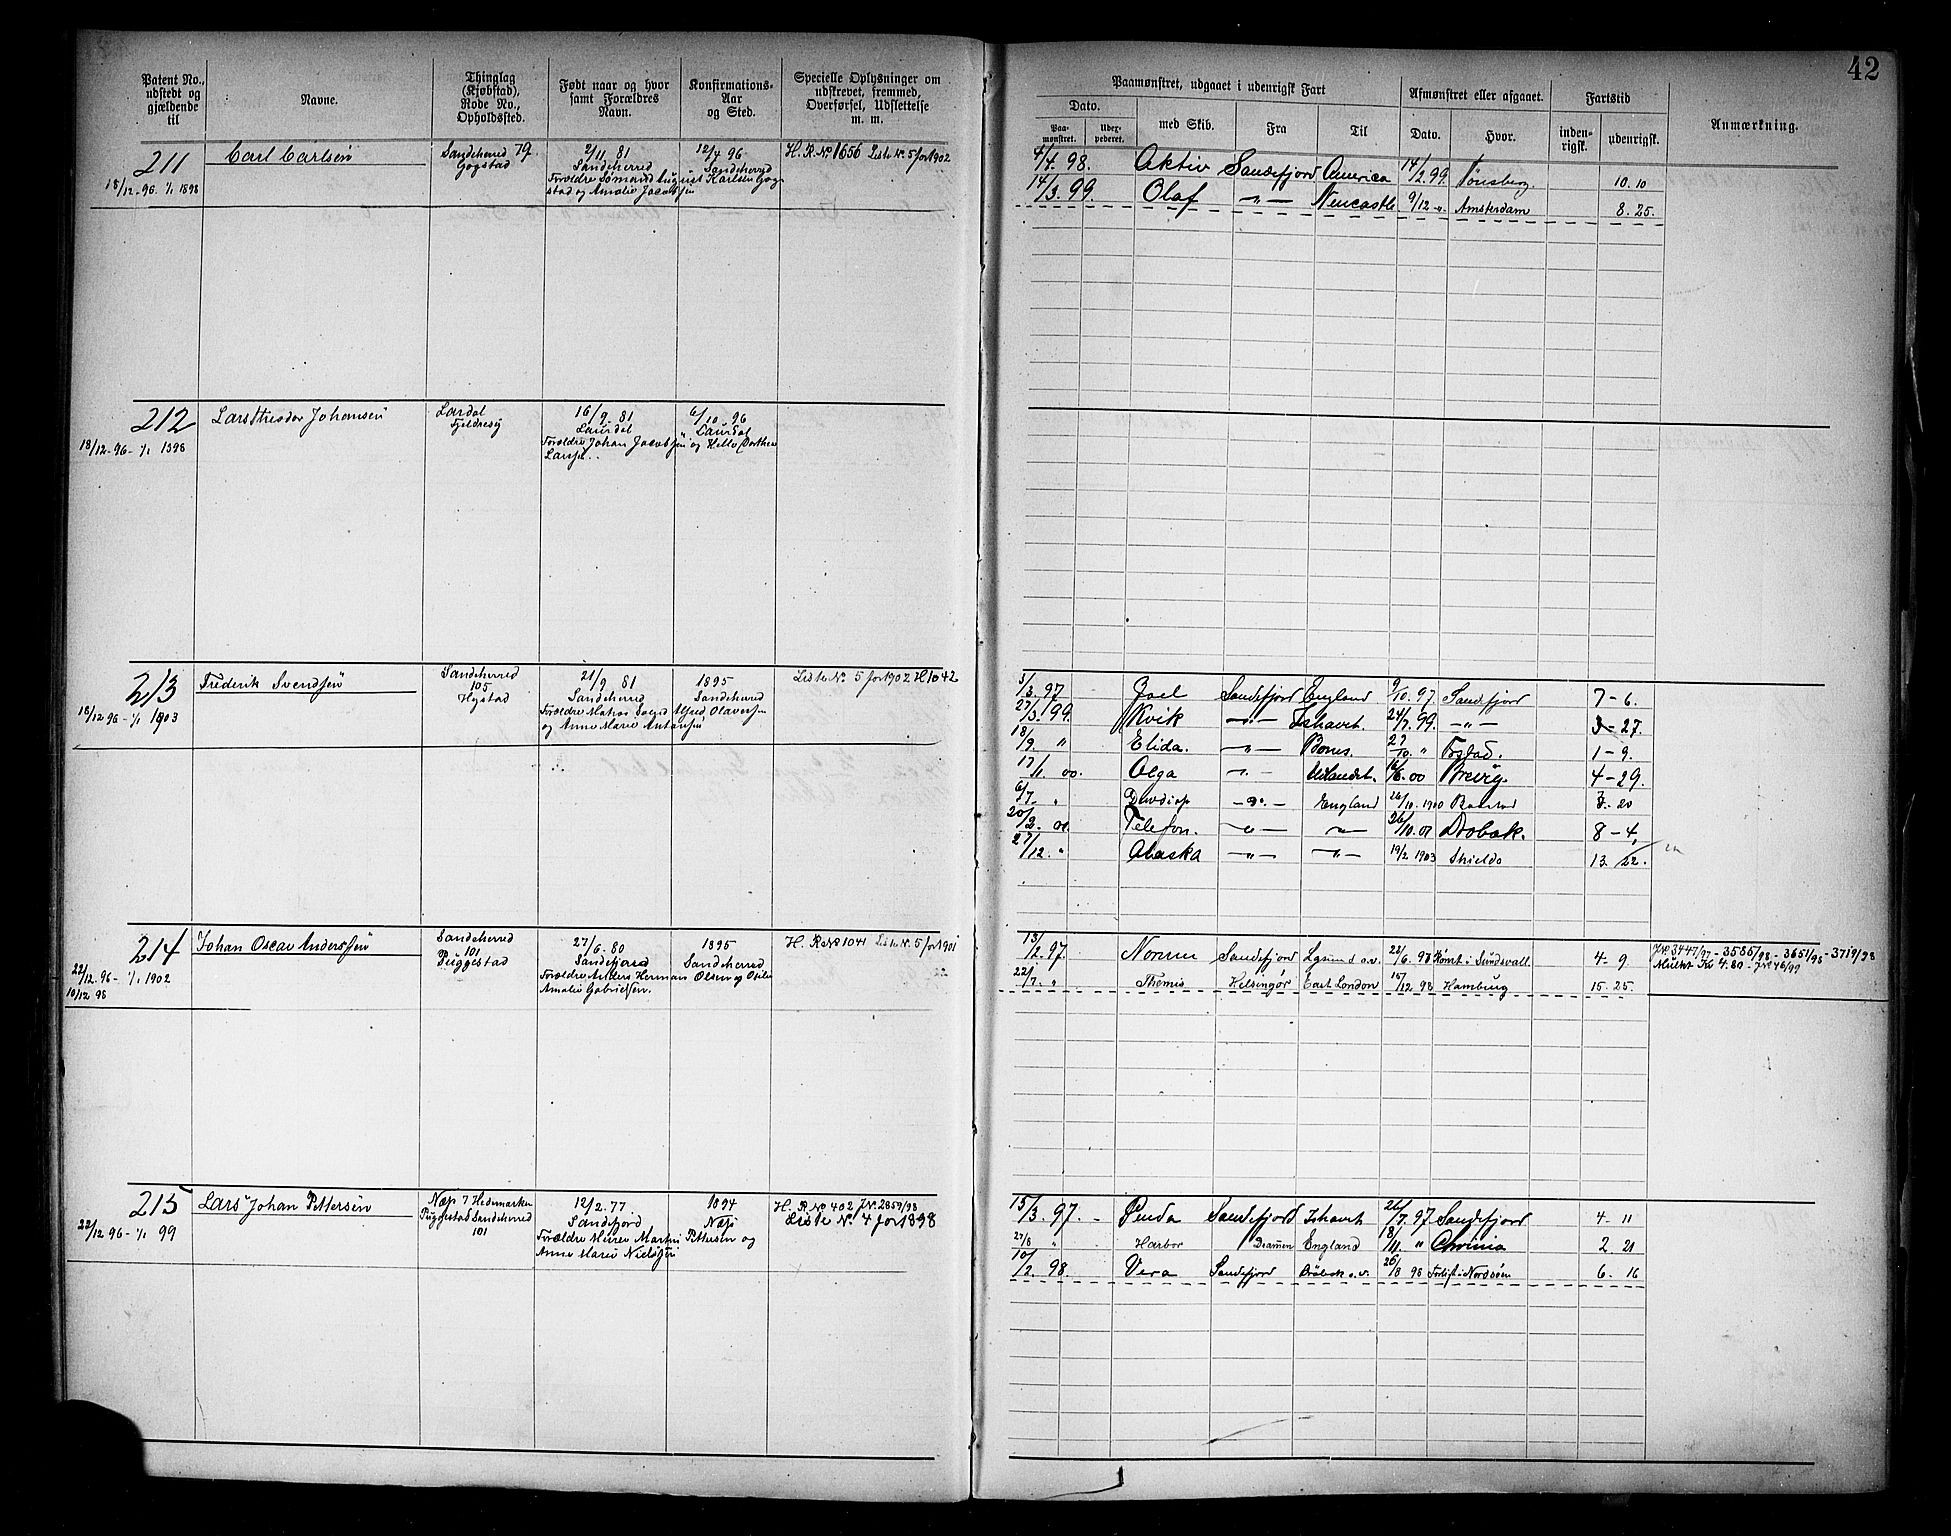 42
Patent No., udstedt og gjældende til
Navne.
Thinglag (Kjøbstad), Rode No., Opholdssted.
Født naar og hvor samt Forældres Navn.
Konfirmations-Aar og Sted.
Specielle Oplysninger om udskrevet, fremmed, Overførsel, Udslettelse m. m.
Paamønstret, udgaaet i udenrigsk Fart
Dato.
Paa-mønstret.
Uder-pederet.
med Skib.
Fra
Til
Afmønstret eller afgaaet.
Dato.
Hvor.
Fartstid
inden-rigsk.
udenrigsk.
Anmærkning.
211
18/12-96. 1/1 1898
Carl Carlsen
Sandeherred 79.
Gogstad
2/11 81
Sandeherred
12/4 96
Sandeherred
Forældre Sømand August Karlsen Gog-
stad og Amalie Jacobsen
H. R. No 1656 Liste No. 5 for 1902
4/4 98. Aktiv Sandefjord America 14/2 99. Tønsberg. 10. 10
14/3. 99. Olaf -"- Newcastle 9/12 -"- Amsterdam 8. 25.
212
18/12-96- 1/1 1898
Lars Theodor Johansen
Lardal
16/9 81
Laurdal
6/10 96
Laurdal
Forældre Johan Jacobsen og Helle Dorthea
Larsd..
213
18/12 96 - 1/1 1903
Frederik Svendsen
Sandeherred
105
Hystad
21/9 81
Sandeherred
1895
Sandeherred
Forældre Matros Svend Alfred Olavesen
og Anne Marie Antonsen
Liste No. 5 for 1902 H 1042
3/3. 97 Joel Sandefjord England 9/10. 97. Sandefjord 7-6.
27/3. 99. Kvik -"- Ishavet. 24/7. 99. -"- 3-27.
18/9. " Elida. -"- 27/10. " 1-9.
17/1. 00. Olga -"- Udlandet. 16/6. 00 Brevig. 4-29.
6/7. " -"- England 26/10. 1900 3. 20
20/2. 01. Telefon. -"- -"- 26/10. 01 Drøbak. 8-4,
27/12. " Alaska -"- -"- 19/2 1903 Shields 13. 22.
214
22/12. 96- 1/1 1902
10/12 98
Johan Oscar Anderssen
Sandeherred
101
Puggestad
27/6- 80
Sandefjord
1895
Sandeherred
Forældre Anders Herman Olsen og Oteli
Amalie Gabrielsen.
H. R. No 1041 Liste No. 5 for 1901
13/2. 97. Norrun Sandefjord 22/6. 97 Rømt i Sundsvall. 4-9.
22/7. " Themis Helsingør East London 15/12 98 Hamburg 15. 25.
J.No. 3447/97 - 3585/98 - 3651/98 - 3719/98
Mulkt Kr 4.80 - J.No. 46/99
215
22/12 96 - 1/1 99
Lars Johan Pettersen
Næs 7 Hedemarken
Puggestad Sandeherred
101
12/2. 77
Sandefjord
1894
Næs
Forældre Herren Martin Pettersen og
Anne Marie Nielsen
H. R. No 402 J.No. 2859/98
Liste No. 4 for 1898
15/3. 97. Penda Sandefjord Ishavet 26/7. 97 Sandefjord 4-11
27/8 " Harbor Dramen England 18/11. " Chrinia 2. 21
10/2. 98. Vera Sandefjord Drøbak o.v. 26/8 98 Forlist i Nordsøen 6. 16